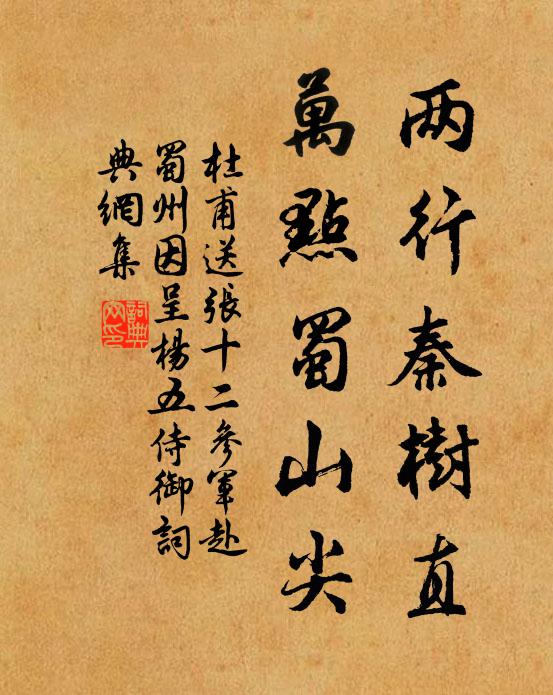 两行秦樹直
萬點蜀山尖
杜甫送張十二參軍赴
蜀州因呈楊五侍御詞
典網集
詞典
网印